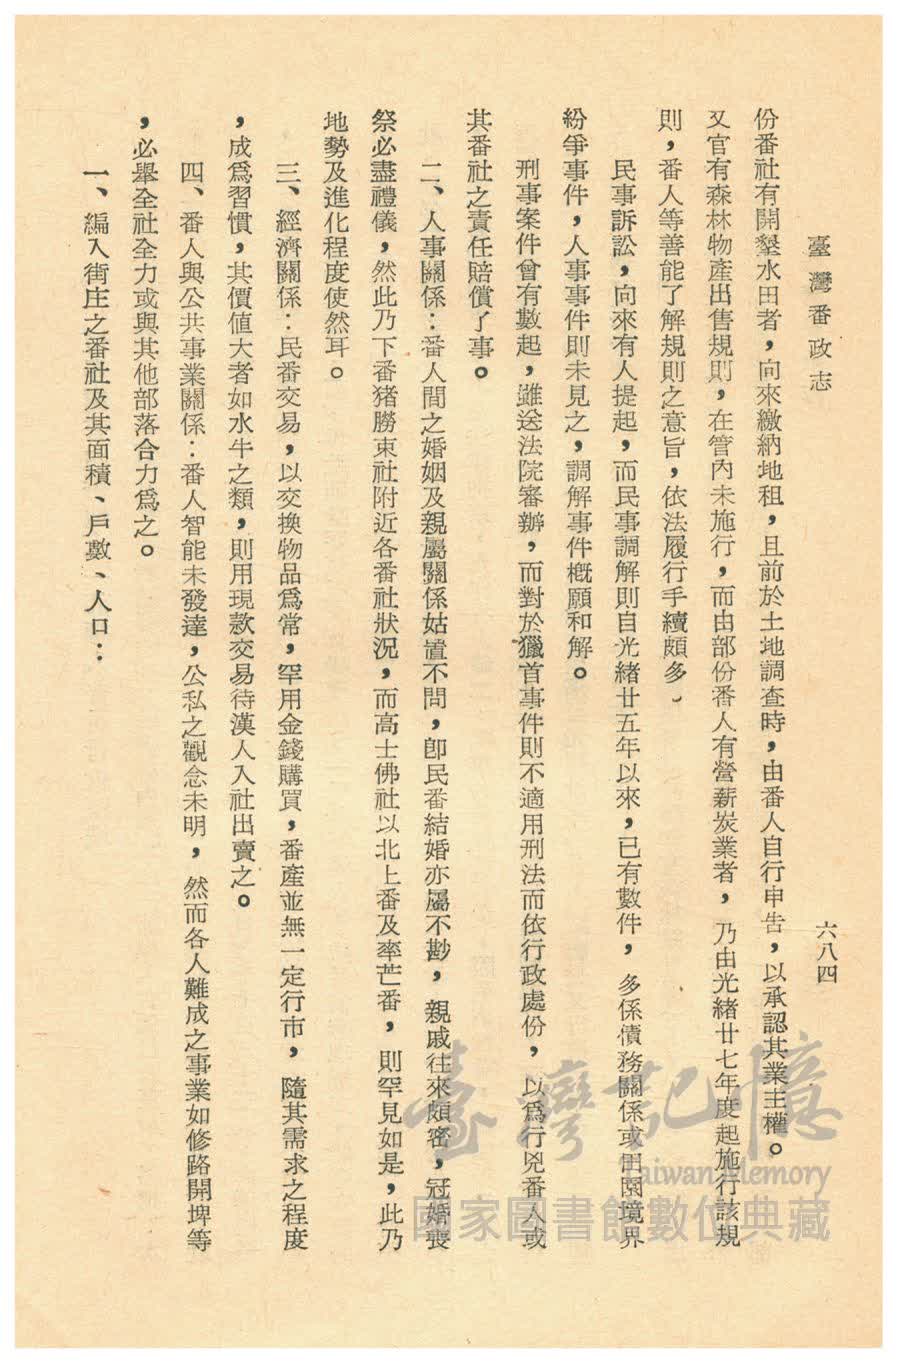 臺灣番政志
六八四
份番社有開墾水田者，向來繳納地租，且前於土地調查時，由番人自行申告，以承認其業主權。
又官有森林物產出售規則，在管內未施行，而由部份番人有營薪炭業者，乃由光緒廿七年度起施行該規
則，番人等善能了解規則之意旨，依法履行手續頗多、
民事訴訟，向來有人提起，而民事調解則自光緒廿五年以來，已有數件，多係債務關係或田園境界
紛爭事件，人事事件則未見之，調解事件概願和解。
刑事案件曾有數起，雖送法院審辦，而對於獵首事件則不適用刑法而依行政處份，以爲行兇番人或
其番社之責任賠償了事。
二、人事關係：番人間之婚姻及親屬關係姑置不問，卽民番結婚亦屬不尠，親戚往來頗密，冠婚喪
祭必盡禮儀，然此乃下番猪勝束社附近各番社狀況，而高士佛社以北上番及率芒番，則罕見如是，此乃
地勢及進化程度使然耳。
三、經濟關係：民番交易，以交換物品爲常，罕用金錢購買，番產並無一定行市，隨其需求之程度
，成爲習慣，其價値大者如水牛之類，則用現款交易待漢人入社出賣之。
四、番人與公共事業關係：番人智能未發達，公私之觀念未明，然而各人難成之事業如修路開埤等
，必舉全社全力或與其他部落合力爲之。
一、編入街庄之番社及其面積、戶數、人口：
臺灣記憶
Taiwan Memory
國家圖書館數位典藏